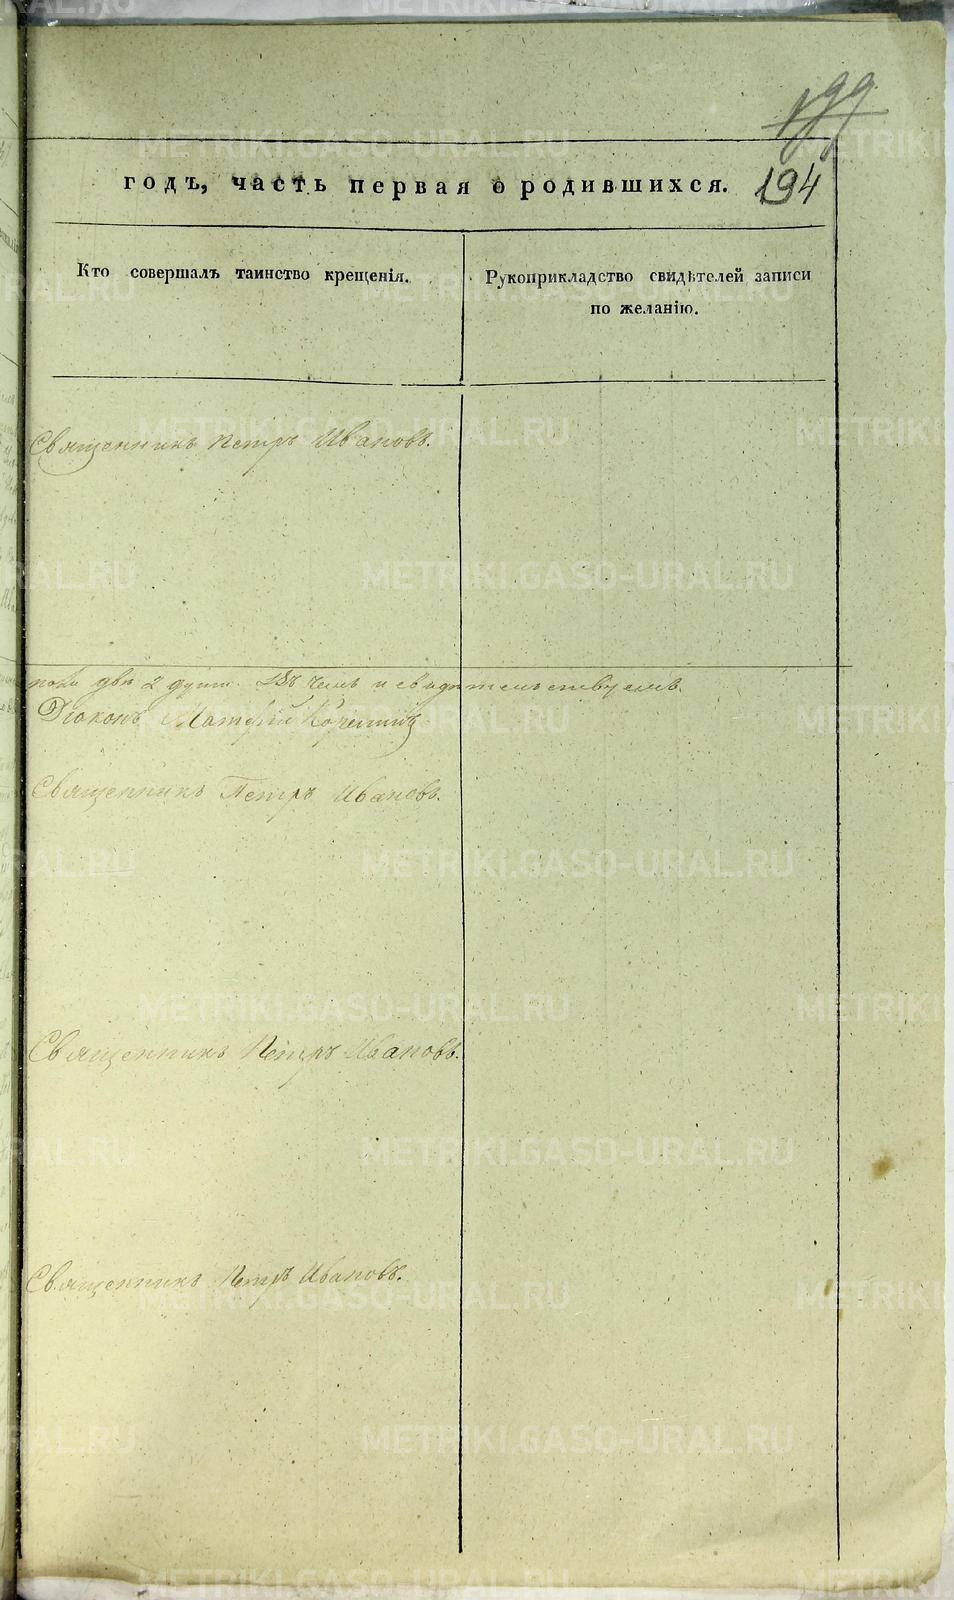 199
194
годъ, часть первая о родившихся.
Кто совершалъ таинство крещенія.
Рукоприкладство свидѣтелей записи
по желанію.
Священникъ Петръ Ивановъ.
двѣ 2 души. Въ чемъ и свидѣтельствуемъ.
Діаконъ
Священникъ Петръ Ивановъ.
Священникъ Петръ Ивановъ.
Священникъ Петръ Ивановъ.
METRIKI.GASO-URAL.RU